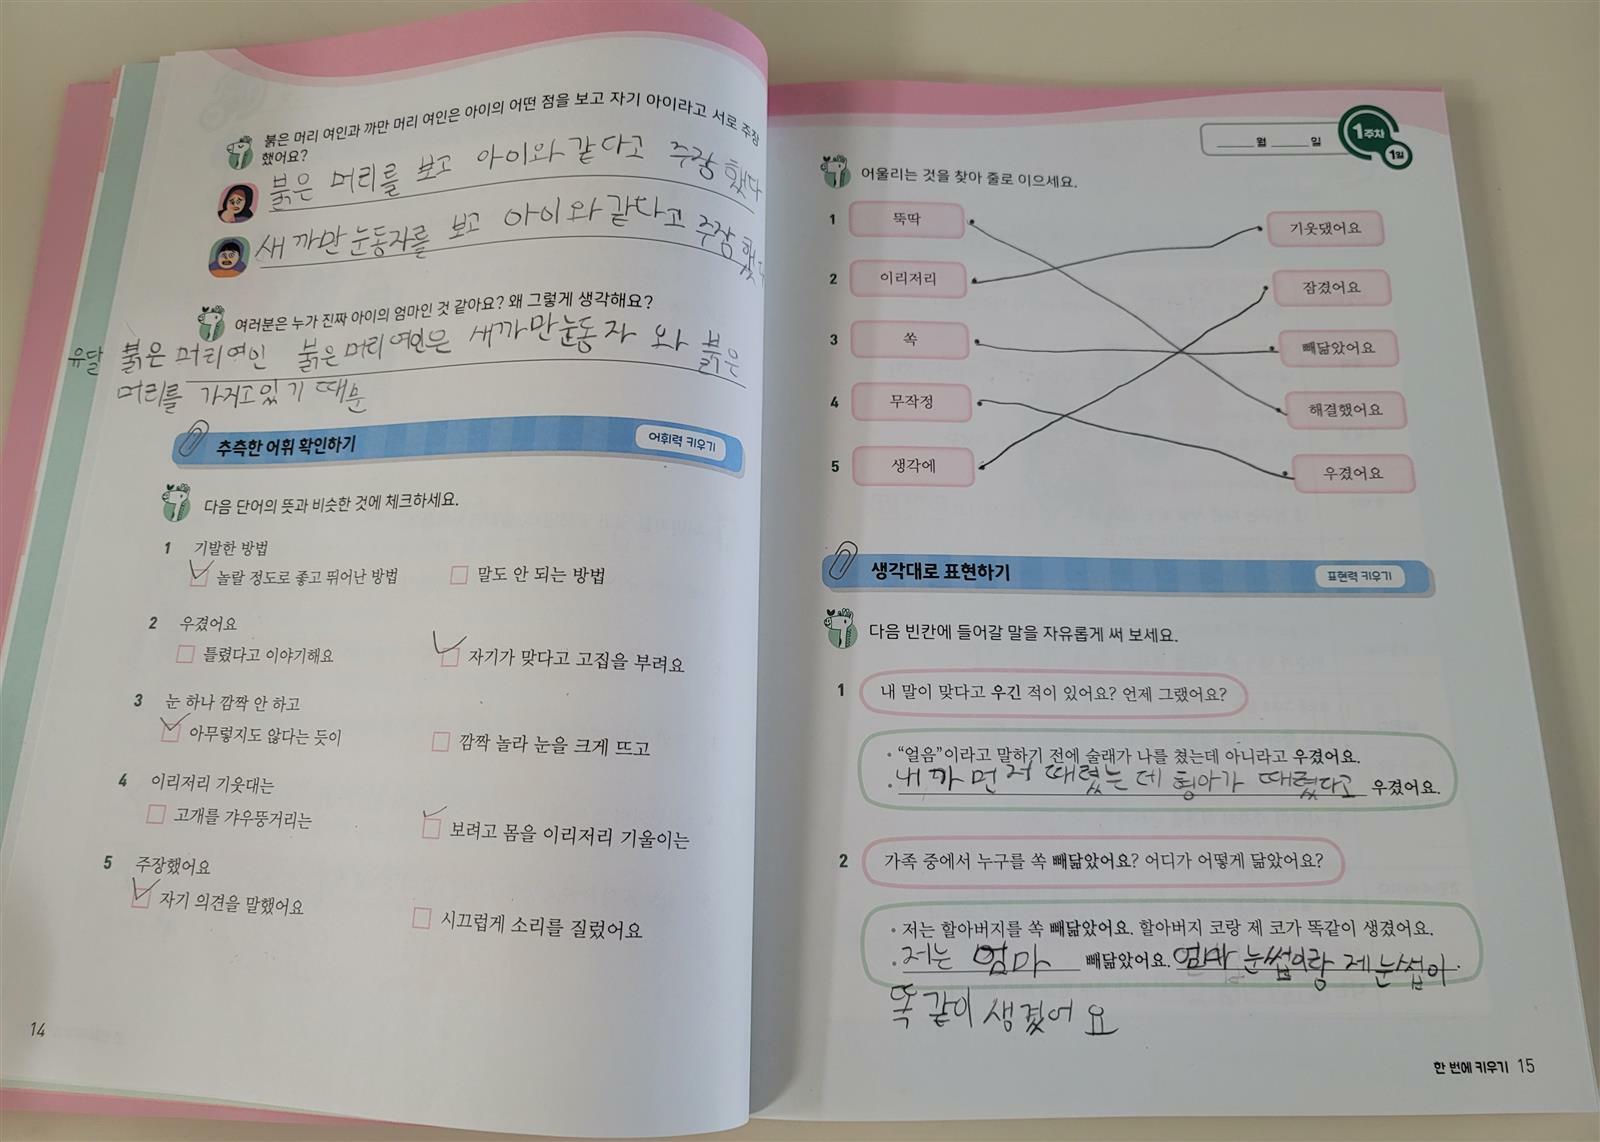 붉은 머리 여인과 까만 머리 여인은 아이의 어떤 점을 보고 자기 아이라고 서로 주장
했어요?
붉은 머리를 보고 아이와 같다고 주장 했다
새 까만 눈동자를 보고 아이와 같다고 주장 했
여러분은 누가 진짜 아이의 엄마인 것 같아요? 왜 그렇게 생각해요?
유달
붉은 머리여인 붉은 머리 여인은 새까만눈동자 와 붉은
머리를 가지고있기 때문
추측한 어휘 확인하기
어휘력 키우기
다음 단어의 뜻과 비슷한 것에 체크하세요.
1 기발한 방법
놀랄 정도로 좋고 뛰어난 방법 말도 안 되는 방법
2 우겼어요
틀렸다고 이야기해요 자기가 맞다고 고집을 부려요
3 눈 하나 깜짝 안 하고
아무렇지도 않다는 듯이 깜짝 놀라 눈을 크게 뜨고
4 이리저리 기웃대는
고개를 갸우뚱거리는 보려고 몸을 이리저리 기울이는
5 주장했어요
자기 의견을 말했어요 시끄럽게 소리를 질렀어요
14
월 일
1주차
1일
어울리는 것을 찾아 줄로 이으세요.
1 뚝딱 기웃댔어요
2 이리저리 잠겼어요
3 쏙 빼닮았어요
4 무작정 해결했어요
5 생각에 우겼어요
생각대로 표현하기
표현력 키우기
다음 빈칸에 들어갈 말을 자유롭게 써 보세요.
1 내 말이 맞다고 우긴 적이 있어요? 언제 그랬어요?
• “얼음”이라고 말하기 전에 술래가 나를 쳤는데 아니라고 우겼어요.
• 내 까 먼 저 때렸는 데 형아가 때렸다고 우겼어요.
2 가족 중에서 누구를 쏙 빼닮았어요? 어디가 어떻게 닮았어요?
• 저는 할아버지를 쏙 빼닮았어요. 할아버지 코랑 제 코가 똑같이 생겼어요.
• 저는 엄마 빼닮았어요. 엄마 눈썹이랑 제 눈섭이
똑 같이 생겼어 요
한 번에 키우기 15